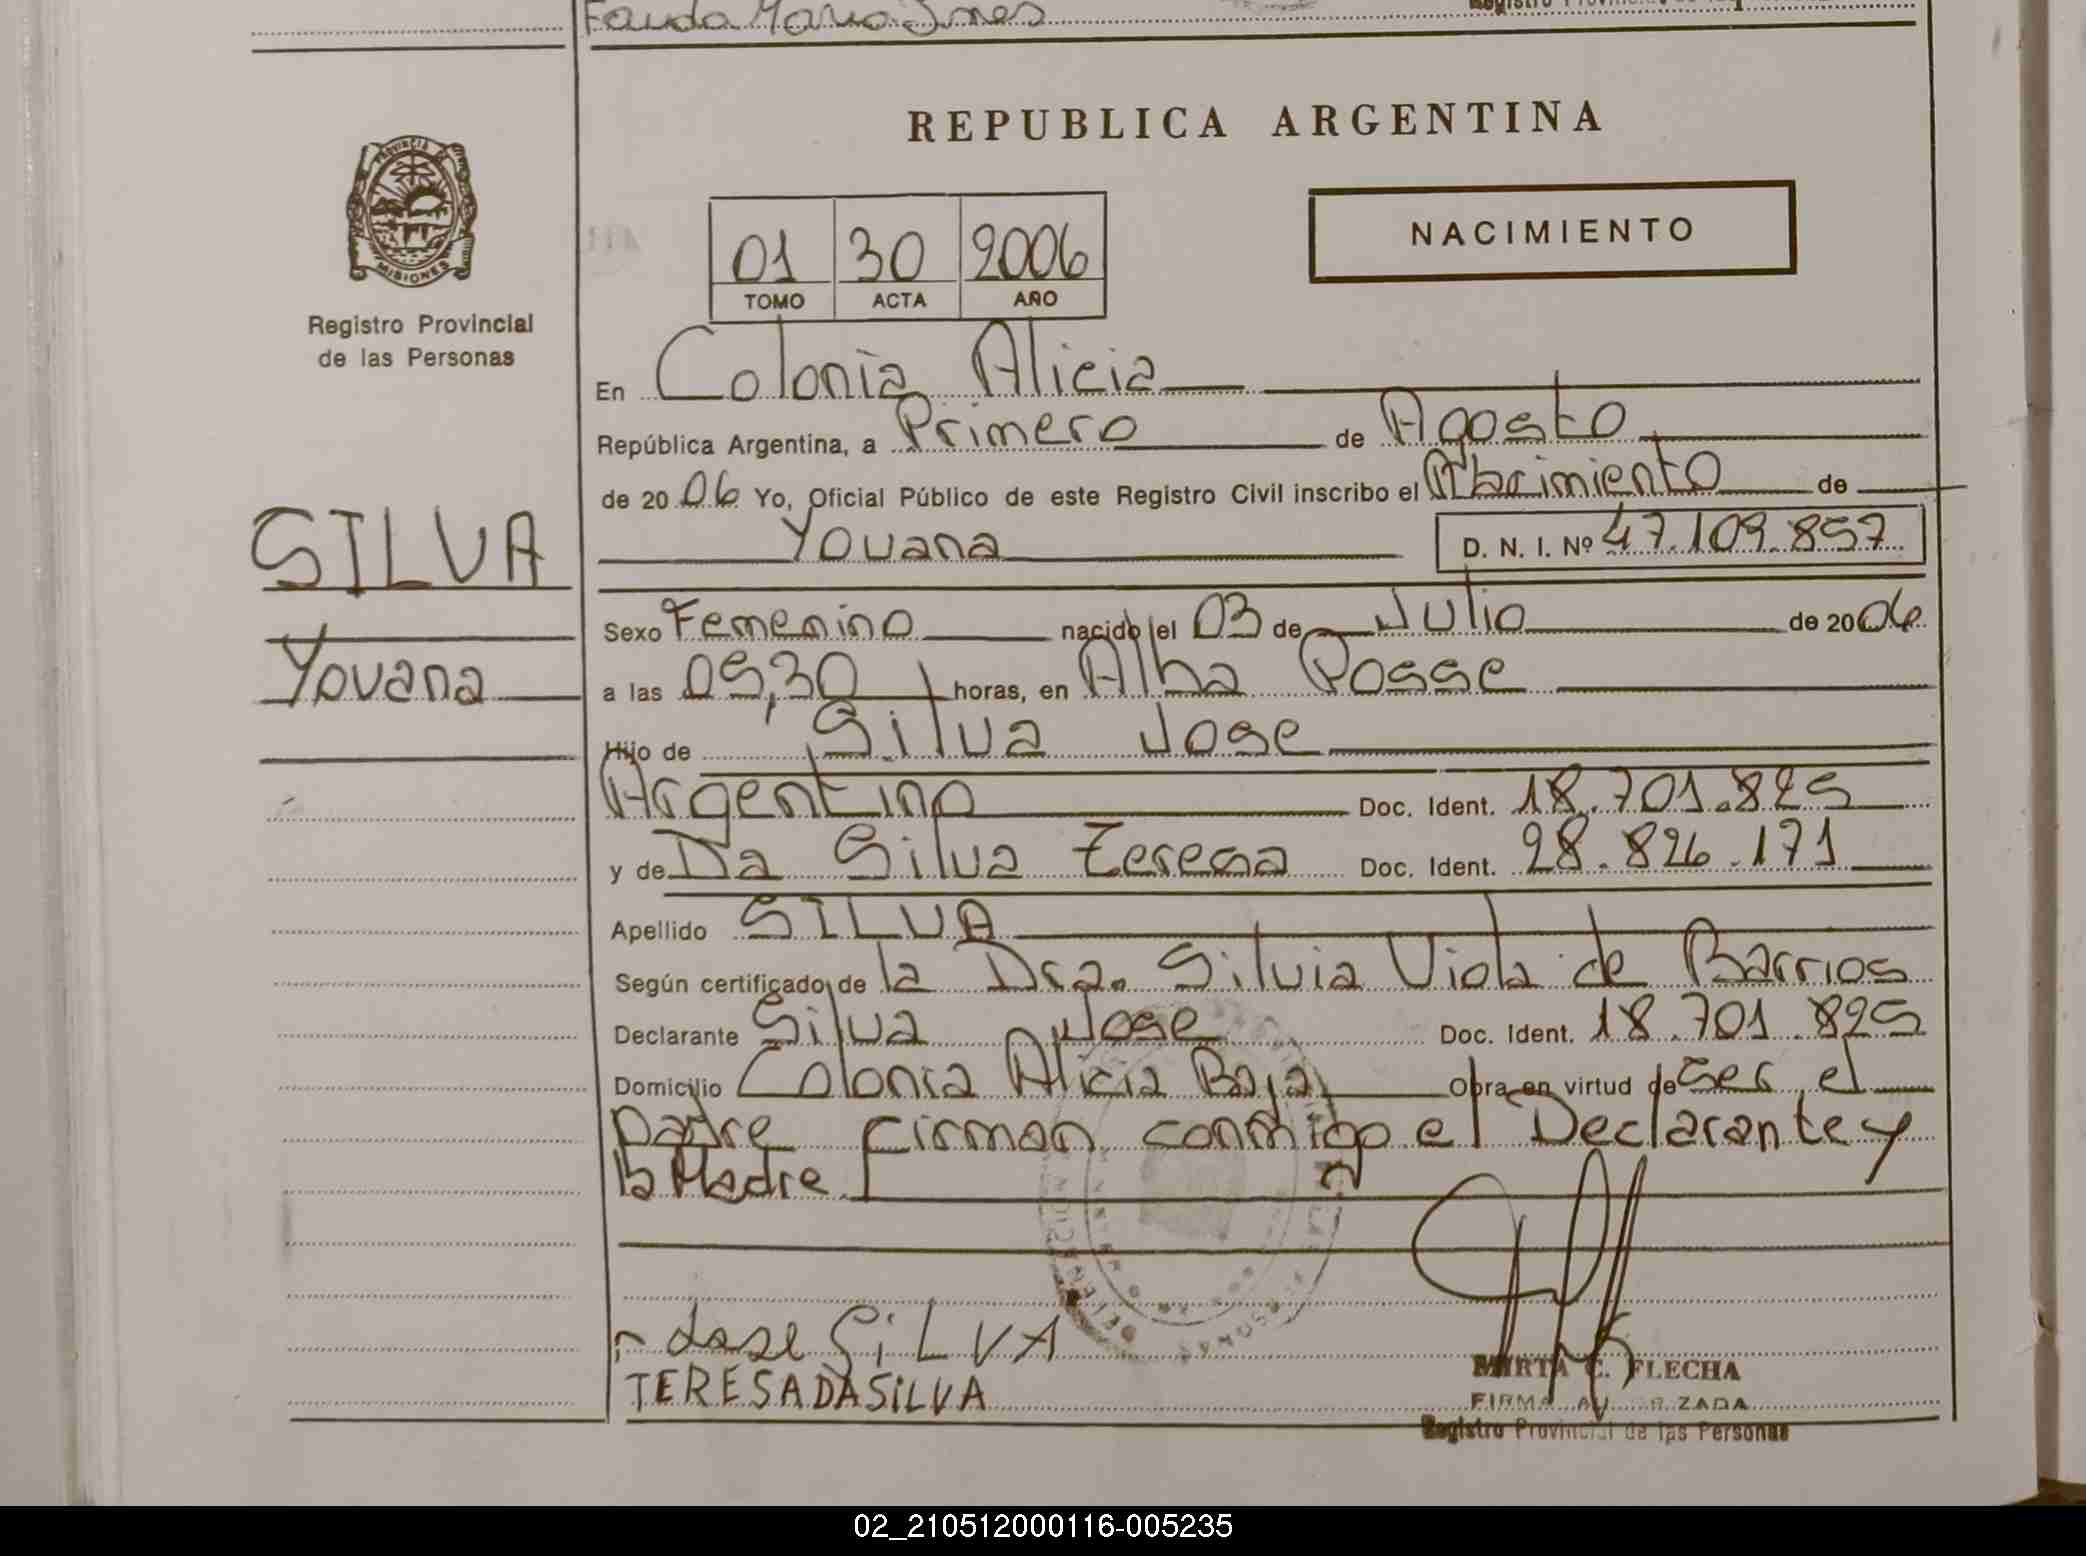 Registro Provincial
REPUBLICA ARGENTINA
PROVINCIA DE
MISIONES
Registro Provincial
de las Personas
01 30 2006
TOMO ACTA AÑO
NACIMIENTO
En Colonia Alicia
República Argentina, a Primero de Agosto
de 2006 Yo, Oficial Público de este Registro Civil inscribo el Nacimiento de
Yovana D. N. I. Nº 47.109.857
SILVA
Yovana
Sexo Femenino nacido el 03 de Julio de 2006
a las 05,30 horas, en Alba Posse
Hijo de Silva Jose
Argentino Doc. Ident. 18.701.825
y de Da Silva Teresa Doc. Ident. 28.826.171
Apellido SILVA
Según certificado de la Dra. Silvia Viola de Barrios
Declarante Silva Jose Doc. Ident. 18.701.825
Domicilio Colonia Alicia Baja Obra en virtud de ser el
padre Firman conmigo el Declarante y
la Madre
Jose SiLVA
TERESA DA SiLVA
MIRTA C. FLECHA
FIRMA AUTORIZADA
Registro Provincial de las Personas
02_210512000116-005235